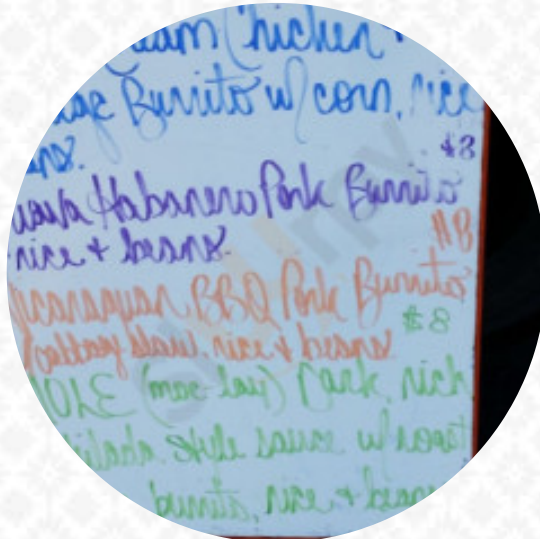 Chicken
Burrito w/ corn, rice
$8
Habanero Pork Burrito
rice + beans.
$8
BBQ Pork Burrito
$8
slaw, rice & beans
(moe-lay) Dark, rich
style sauce w/ roast
burrito, rice + beans